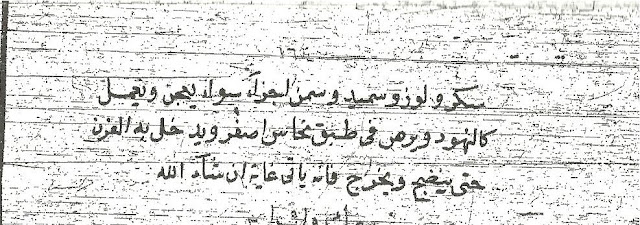 ١٦٤
سكر ولوز وسميد وسمن اجزآء سواء يعجن ويعمل
كالنهود ويرص فى طبق نحاس اصفر ويدخل به الفرن
حتى ينضج ويخرج فانه ياتى غاية ان شآء الله